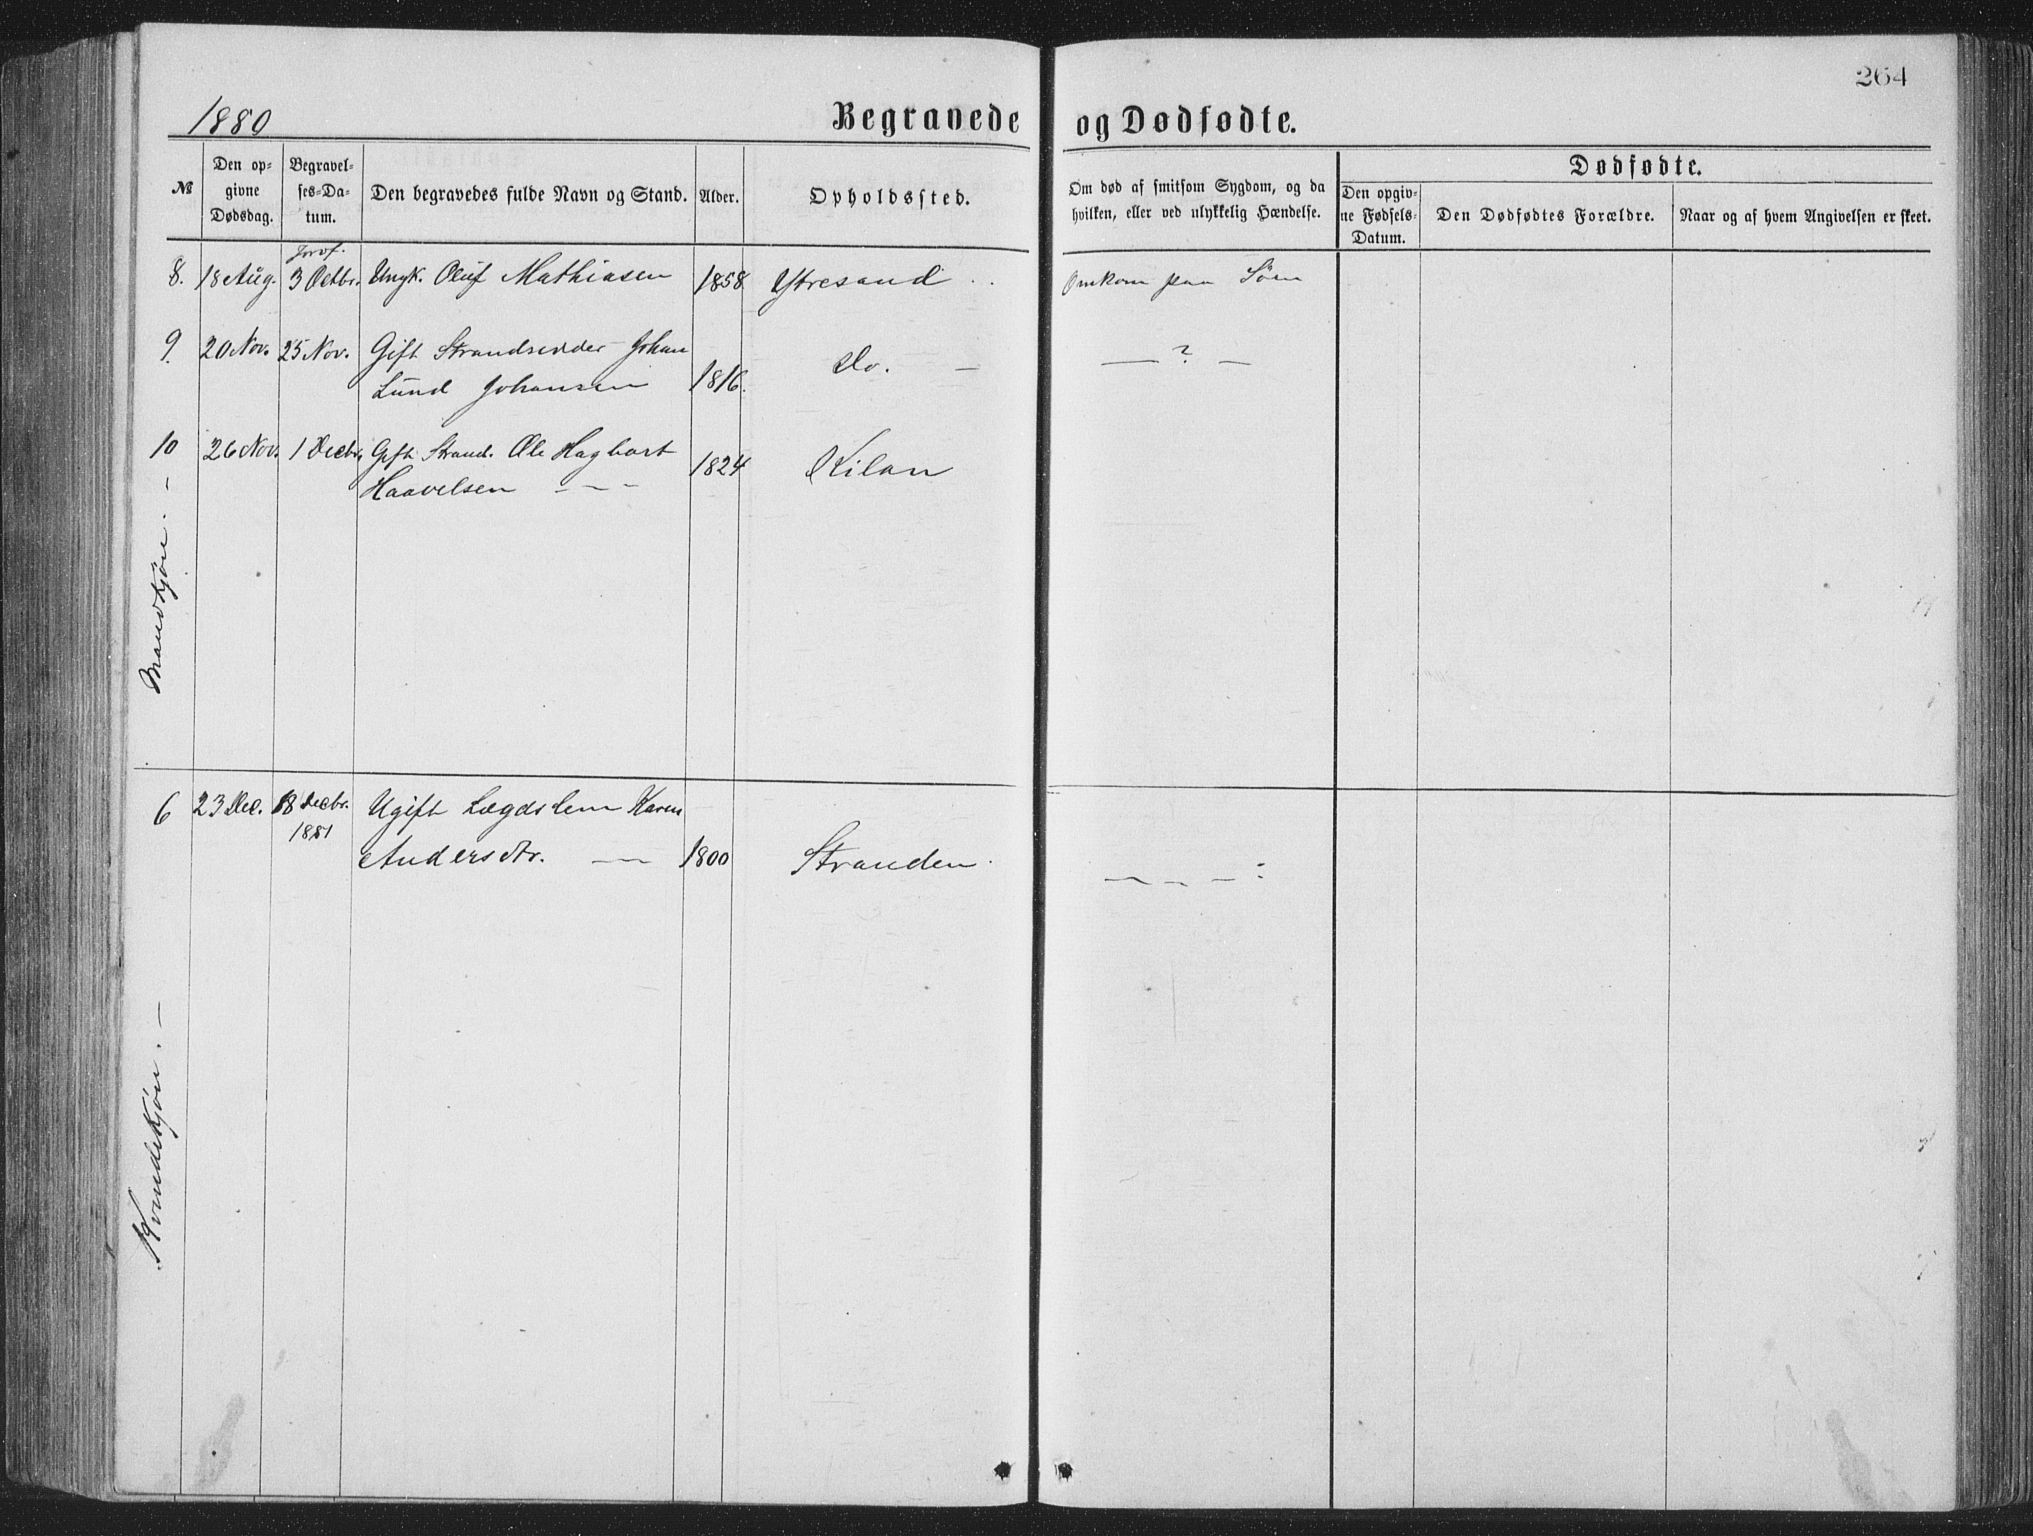 264
1880 Begravede og Dødfødte.
№ Den opgivne Dødsdag. Begravelses-Datum. Den begravedes fulde Navn og Stand. Alder. Opholdssted. Om død af smitsom Sygdom, og da hvilken, eller ved ulykkelig Hændelse. Dødfødte. Den opgivne Fødsels-Datum. Den Dødfødtes Forældre. Naar og af hvem Angivelsen er skeet.
Jordf.
8. 18 Aug. 3 Octbr. Ungk. Oluf Mathiasen 1858 Ytresand . . Omkom paa Söen
9. 20 Nov. 25 Nov. Gift Strandsidder Johan
Lund Johansen 1816. do. — — ? —
10 26 Nov. 1 Decbr. Gift Strand. Ole Hagbart
Haavelsen — — — 1824 Kilan
Mandkjön. —
6 23 Dec. 18 Decbr. Ugift Lægdslem Karen
1881
Andersdtr. — 1800 Stranden.
Kvindekjön. —